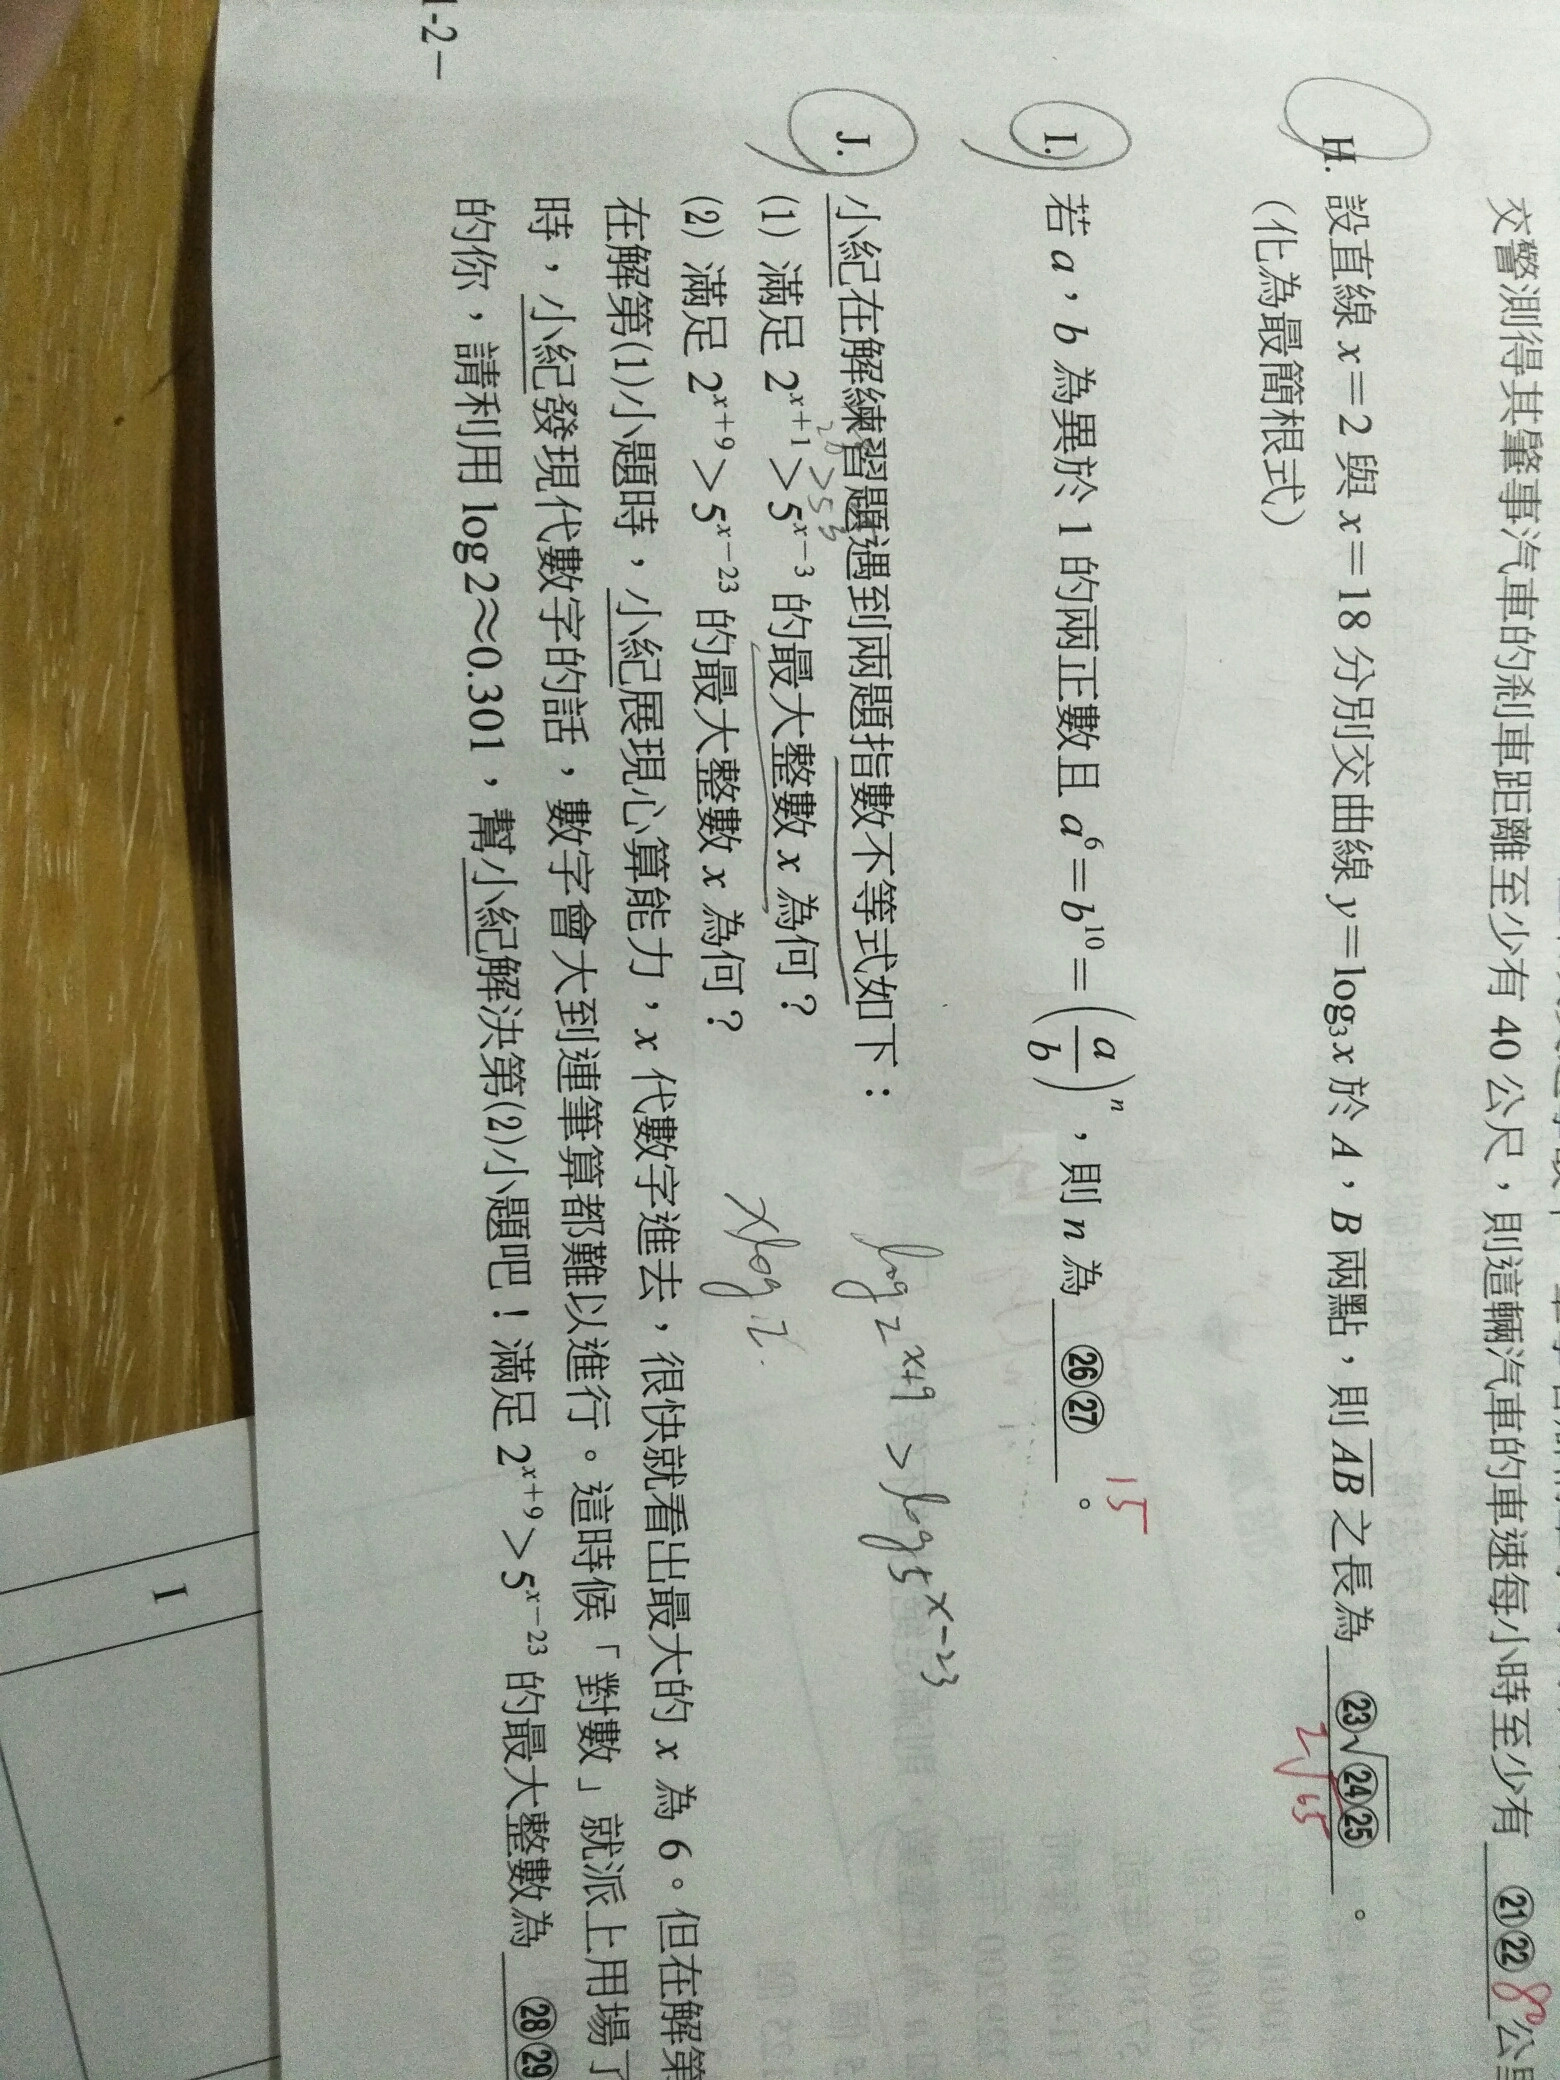 交警測得其肇事汽車的剎車距離至少有 40 公尺，則這輛汽車的車速每小時至少有 ㉑㉒ 公里
80
H. 設直線 x＝2 與 x＝18 分別交曲線 y＝log₃x 於 A，B 兩點，則 AB 之長為 ㉓√㉔㉕ 。
2√65
（化為最簡根式）
I. 若 a，b 為異於 1 的兩正數且 a⁶＝b¹⁰＝(a/b)ⁿ，則 n 為 ㉖㉗ 。
15
J. 小紀在解練習題遇到兩題指數不等式如下：
log 2^(x+9) > log 5^(x-23)
(1) 滿足 2^(x+1)＞5^(x-3) 的最大整數 x 為何？
(2) 滿足 2^(x+9)＞5^(x-23) 的最大整數 x 為何？
xlog 2
在解第(1)小題時，小紀展現心算能力，x 代數字進去，很快就看出最大的 x 為 6。但在解第
時，小紀發現代數字的話，數字會大到連筆算都難以進行。這時候「對數」就派上用場了
的你，請利用 log2≈0.301，幫小紀解決第(2)小題吧！滿足 2^(x+9)＞5^(x-23) 的最大整數為 ㉘㉙
1-2－
I